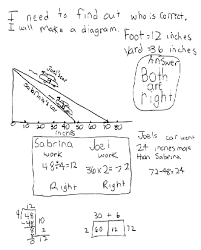 I need to find out who is correct.
I will make a diagram.
Foot = 12 inches
Yard = 36 inches
Answer
Both
are
right
Joel's car
Sabrina's car
0 10 20 30 40 50 60 70 80
inches
Sabrina
work
48÷4=12
Right
Joel
work
36x2=72
Right
Joel's car went
24 inches more
than Sabrina.
72-48=24
12
4 48
10
2
12
30 + 6
2 60 12 72